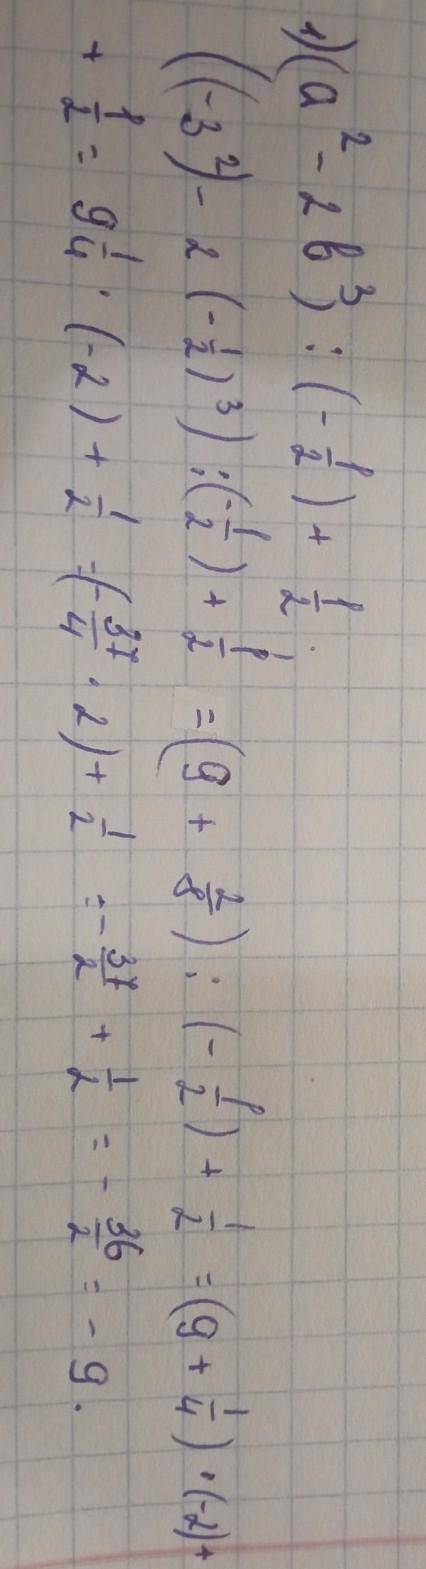 1) (a² - 2b³) : (-1/2) + 1/2.
((-3²) - 2(-1/2)³) : (-1/2) + 1/2 = (9 + 2/8) : (-1/2) + 1/2 = (9 + 1/4) · (-2) +
+ 1/2 = 9 1/4 · (-2) + 1/2 = (-37/4 · 2) + 1/2 = -37/2 + 1/2 = -36/2 = -9.